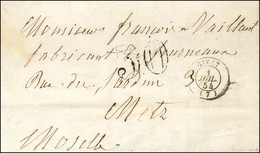 Monsieur François Vaillant
fabricant de fourneaux
Rue du
Metz
Moselle
GIVET
JUIL.
54
(7)